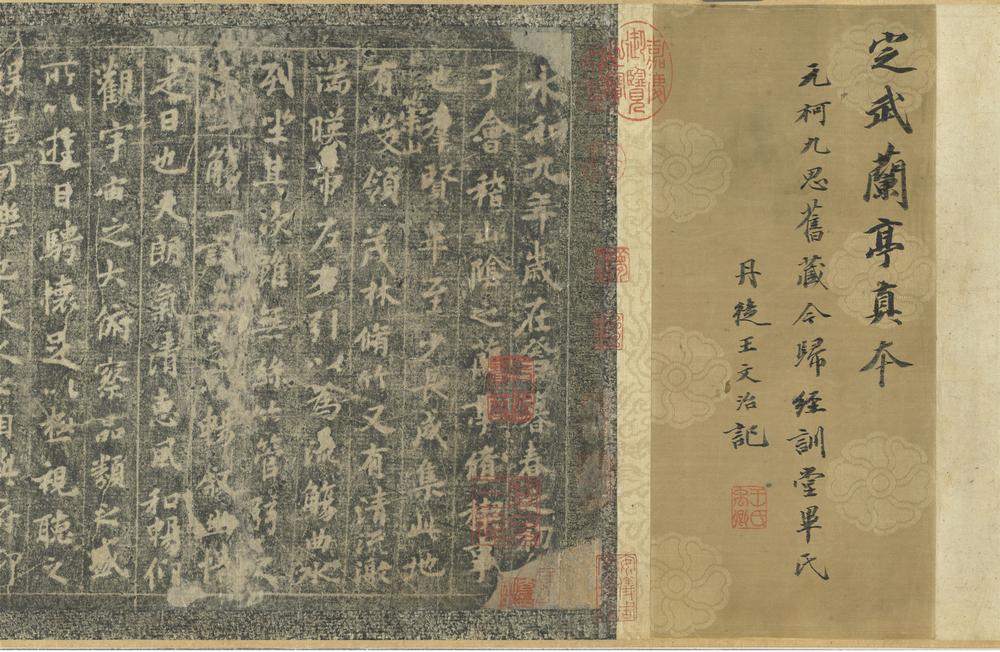 定武蘭亭真本
元柯九思舊藏今歸經訓堂畢氏
丹徒王文治記
嘉慶御覽之寶
永和九年歲在癸暮春之初
于會稽山陰之蘭亭脩禊事
也羣賢畢至少長咸集此地
有崇山峻領茂林脩竹又有清流激
湍暎帶左右引以為流觴曲水
列坐其次雖無絲竹管弦之
盛一觴一詠亦足以暢叙幽情
是日也天朗氣清惠風和暢仰
觀宇宙之大俯察品類之盛
所以遊目騁懷足以極視聽之
娛信可樂也夫人之相與俯仰